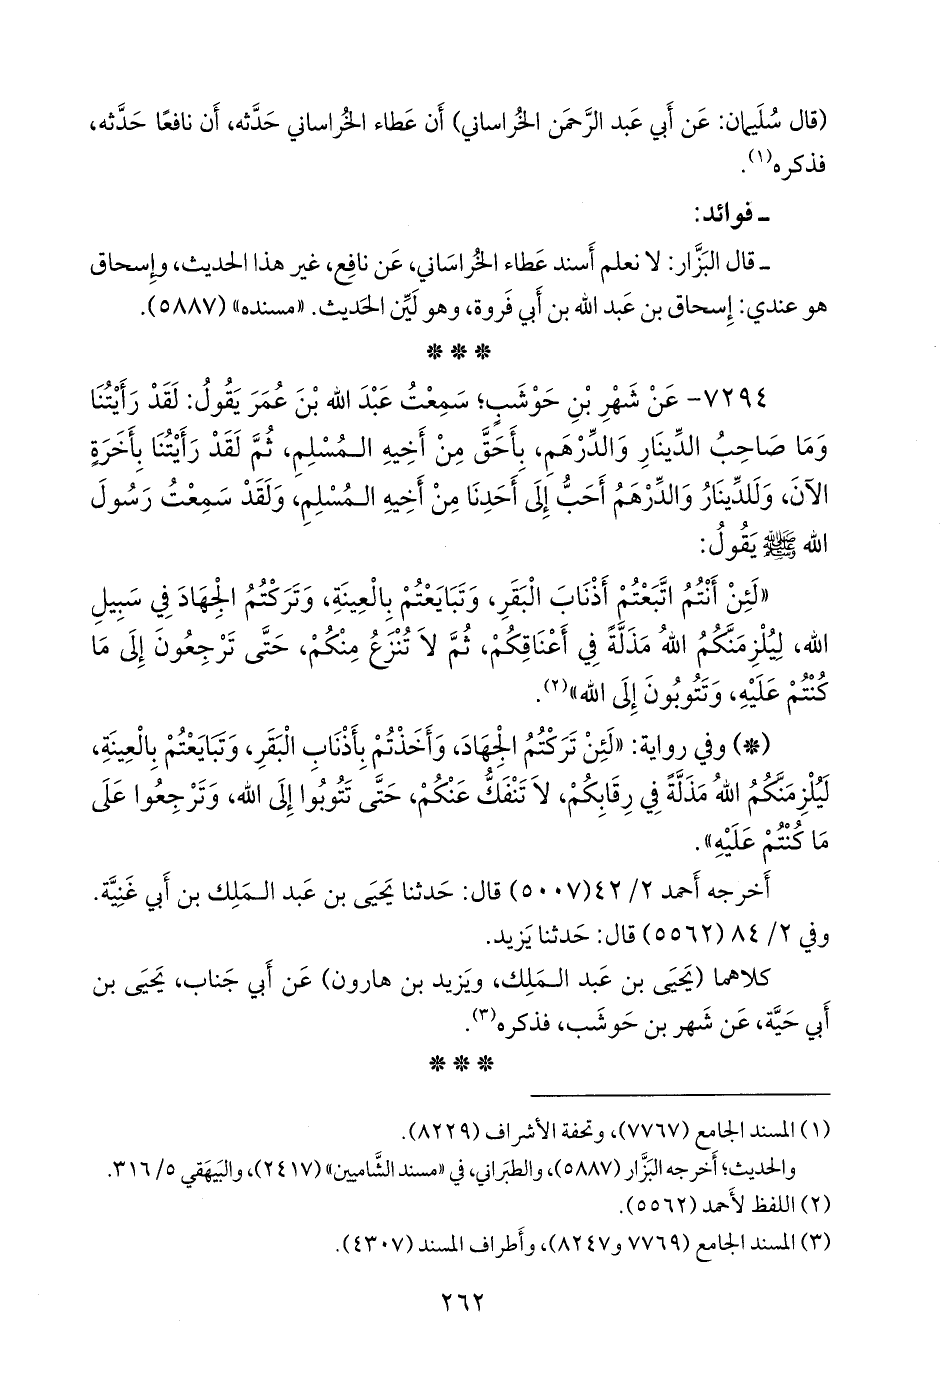 (قال سُلَيمان: عَن أَبي عَبد الرَّحمَن الخُراساني) أَن عَطاء الخُراساني حَدَّثه، أَن نافعًا حَدَّثه،
فذكره(١).
ـ فوائد:
ـ قال البَزَّار: لا نعلم أَسند عَطاء الخُراسَاني، عَن نافِع، غير هذا الحديث، وإِسحاق
هو عندي: إِسحاق بن عَبد الله بن أَبي فَروة، وهو لَيِّن الحَديث. «مسنده» (٥٨٨٧).
* * *
٧٢٩٤- عَنْ شَهْرِ بْنِ حَوْشَبٍ؛ سَمِعْتُ عَبْدَ الله بْنَ عُمَرَ يَقُولُ: لَقَدْ رَأَيْتُنَا
وَمَا صَاحِبُ الدِّينَارِ وَالدِّرْهَمِ، بِأَحَقَّ مِنْ أَخِيهِ الـمُسْلِمِ، ثُمَّ لَقَدْ رَأَيْتُنَا بِأَخَرَةٍ
الآنَ، وَلَلدِّينَارُ وَالدِّرْهَمُ أَحَبُّ إِلَى أَحَدِنَا مِنْ أَخِيهِ الـمُسْلِمِ، وَلَقَدْ سَمِعْتُ رَسُولَ
الله ﷺ يَقُولُ:
«لَئِنْ أَنْتُمُ اتَّبَعْتُمْ أَذْنَابَ الْبَقَرِ، وَتَبَايَعْتُمْ بِالْعِينَةِ، وَتَرَكْتُمُ الْجِهَادَ فِي سَبِيلِ
الله، لَيُلْزِمَنَّكُمُ اللهُ مَذَلَّةً فِي أَعْنَاقِكُمْ، ثُمَّ لاَ تُنْزَعُ مِنْكُمْ، حَتَّى تَرْجِعُونَ إِلَى مَا
كُنْتُمْ عَلَيْهِ، وَتَتُوبُونَ إِلَى الله»(٢).
(*) وفي رواية: «لَئِنْ تَرَكْتُمُ الْجِهَادَ، وَأَخَذْتُمْ بِأَذْنَابِ الْبَقَرِ، وَتَبَايَعْتُمْ بِالْعِينَةِ،
لَيُلْزِمَنَّكُمُ اللهُ مَذَلَّةً فِي رِقَابِكُمْ، لاَ تَنْفَكُّ عَنْكُمْ، حَتَّى تَتُوبُوا إِلَى الله، وَتَرْجِعُوا عَلَى
مَا كُنْتُمْ عَلَيْهِ».
أَخرجه أَحمد ٢/ ٤٢(٥٠٠٧) قال: حَدثنا يَحيَى بن عَبد الـمَلِك بن أَبي غَنِيَّة.
وفي ٢/ ٨٤ (٥٥٦٢) قال: حَدثنا يَزيد.
كلاهما (يَحيَى بن عَبد الـمَلِك، ويَزيد بن هارون) عَن أَبي جَناب، يَحيَى بن
أَبي حَيَّة، عَن شَهر بن حَوشَب، فذكره(٣).
* * *
(١) المسند الجامع (٧٧٦٧)، وتحفة الأشراف (٨٢٢٩).
والحديث؛ أخرجه البَزَّار (٥٨٨٧)، والطبَراني، في «مسند الشَّاميين» (٢٤١٧)، والبَيهَقي ٥/ ٣١٦.
(٢) اللفظ لأَحمد (٥٥٦٢).
(٣) المسند الجامع (٧٧٦٩ و٨٢٤٧)، وأَطراف المسند (٤٣٠٧).
٢٦٢